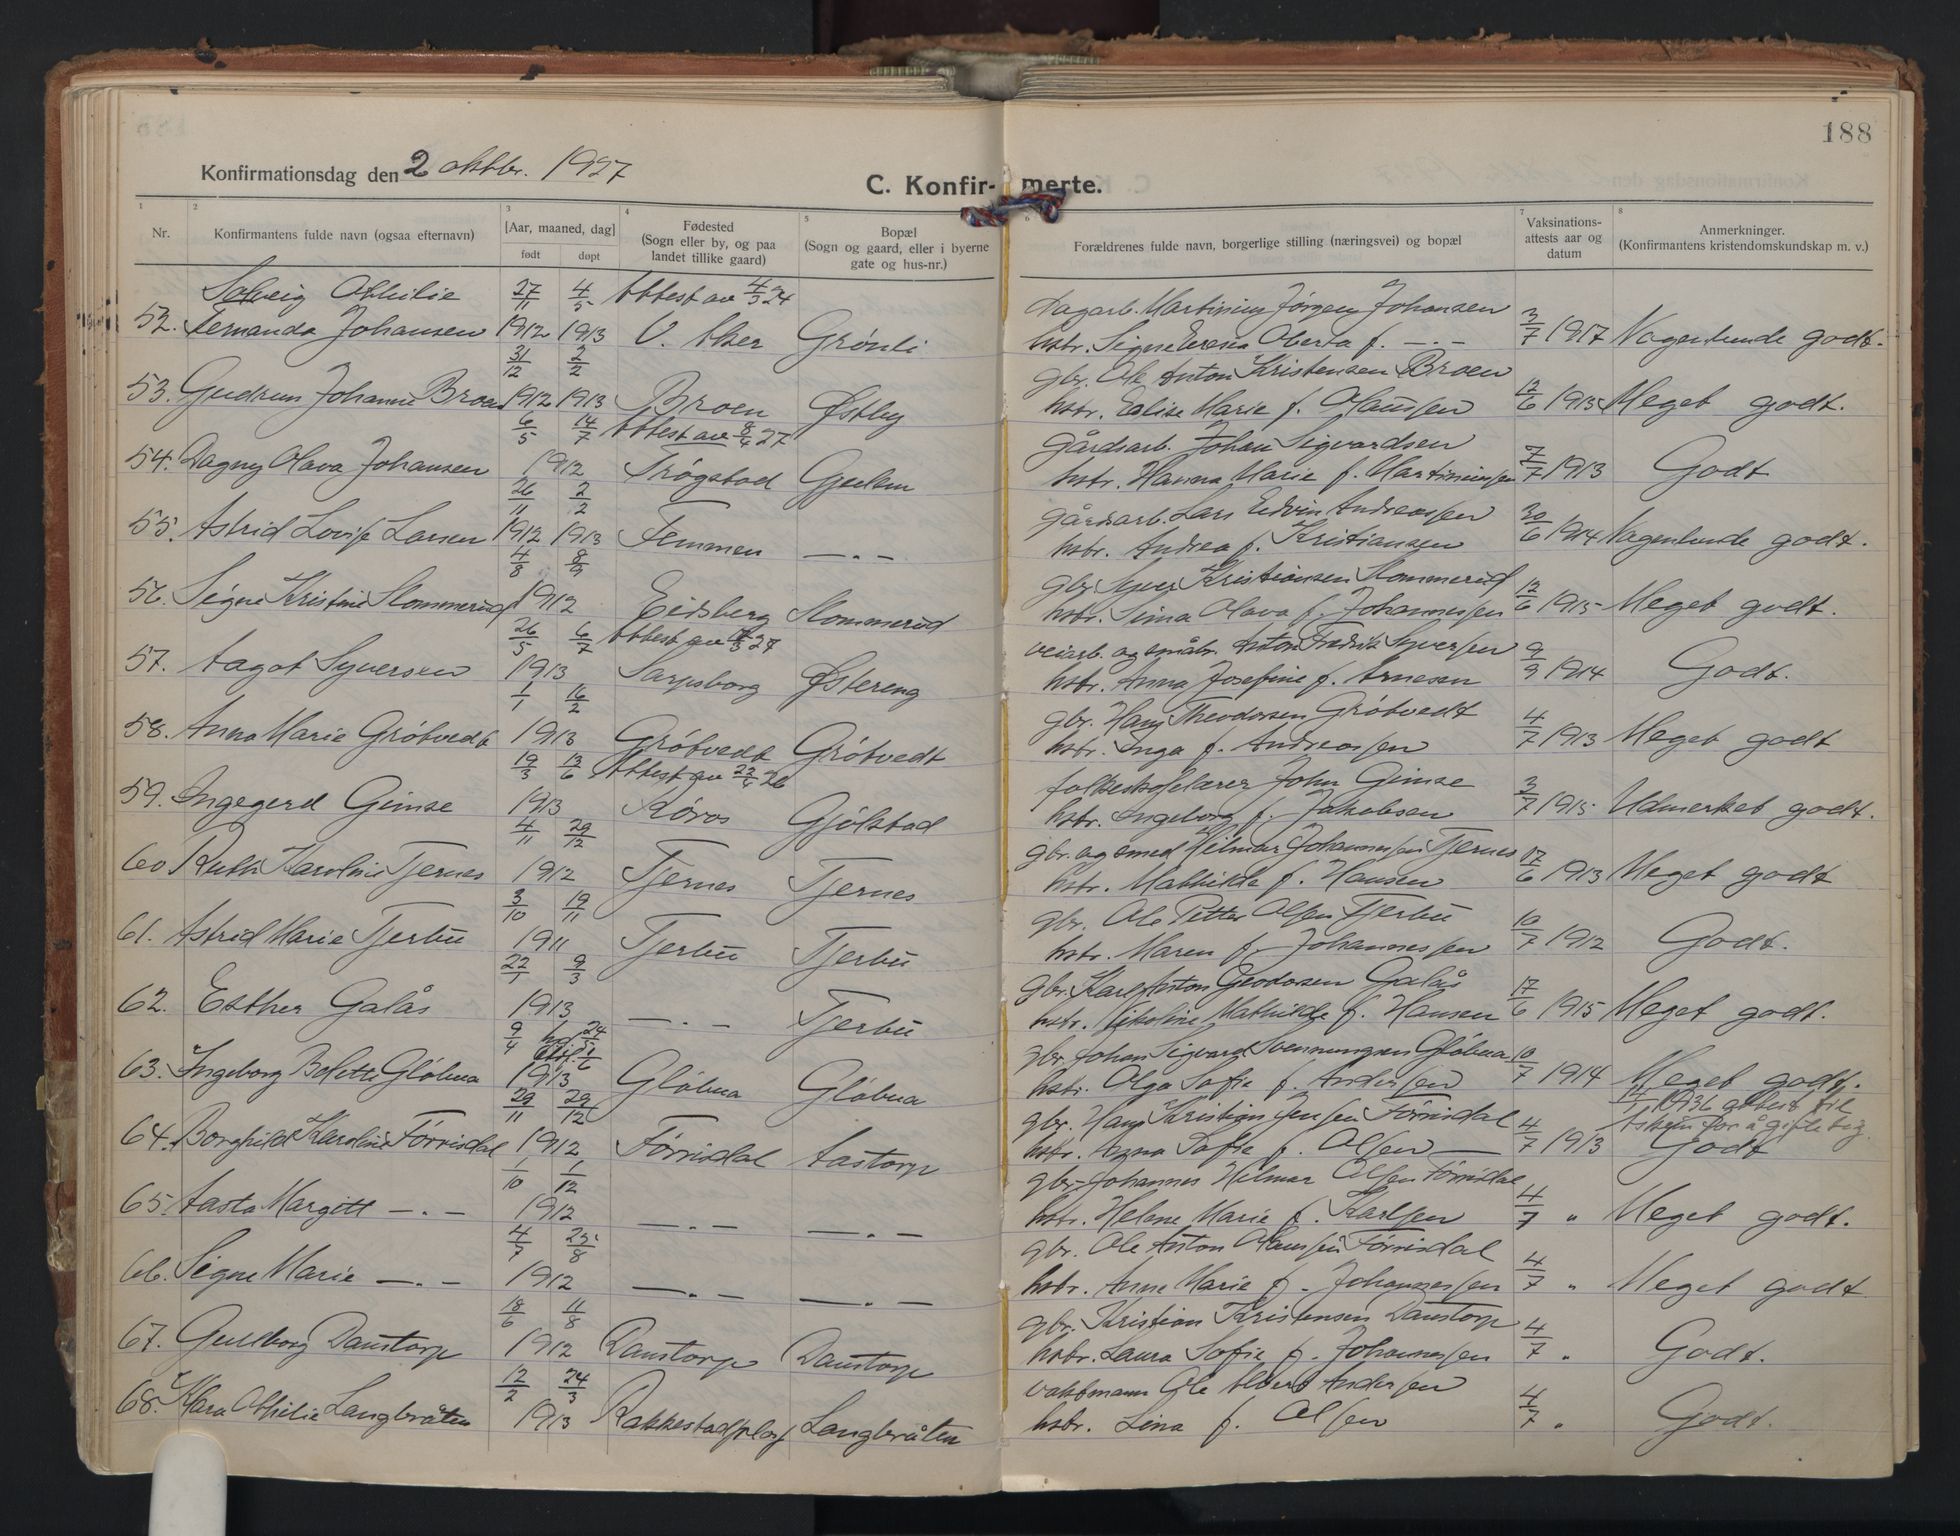 188
Konfirmationsdag den 2 oktbr. 1927
C. Konfir- merte.
1 2 3 4 5 6 7 8
Nr.
Konfirmantens fulde navn (ogsaa efternavn)
[Aar, maaned, dag]
født døpt
Fødested
(Sogn eller by, og paa
landet tillike gaard)
Bopæl
(Sogn og gaard, eller i byerne
gate og hus-nr.)
Forældrenes fulde navn, borgerlige stilling (næringsvei) og bopæl
Vaksinations-
attests aar og
datum
Anmerkninger.
(Konfirmantens kristendomskundskap m. v.)
Solveig Othilie 27/11 4/5 Attest av 4/5 24 Dagarb. Martinius Jørgen Johansen
52. Fernanda Johansen 1912 1913 V. Aker Grønli hstr. Signe Oberta f. —.— 3/7 1917 Nogenlunde godt.
31/12 2/2 gbr. Ole Anton Kristensen Broen
53. Gudrun Johanne Broen 1912 1913 Broen Østby hstr. Edise Marie f. Olaussen 12/6 1915 Meget godt.
6/5 14/7 Attest av 8/4 27 gårdsarb. Johan Sigvardsen
54. Dagny Olava Johansen 1912 Trøgstad Gjulem hstr. Hanna Marie f. Martiniussen 7/7 1913 Godt
26/11 2/2 gårdsarb. Lars Edvin Andreassen
55. Astrid Lovise Larsen 1912 1913 Femmen —.— hstr. Andrea f. Kristiansen 30/6 1914 Nogenlunde godt.
4/8 8/9 gbr. Syver Kristiansen Slommerud
56. Signe Kristine Slommerud 1912 Eidsberg Slommerud hstr. Sina Olava f. Johannessen 12/6 1915 Meget godt.
26/5 6/7 Attest av 27 veiarb. og småbr. Anton Fredrik Syversen
57. Aagot Syversen 1913 Sarpsborg Østereng hstr. Anna Josefine f. Arnesen 9/9 1914 Godt.
1/1 16/2 gbr. Hans Theodorsen Grøtvedt
58. Anna Marie Grøtvedt 1913 Grøtvedt Grøtvedt hstr. Inga f. Andreassen 4/7 1913 Meget godt
19/3 13/6 Attest av 23/4 26 folkeskolelærer John Gimse
59. Ingegerd Gimse 1913 Røros Gjølstad hstr. Ingeborg f. Jakobsen 3/7 1915 Udmerket godt.
4/11 29/12 gbr. og smed Hilmar Johannessen Tjernes
60 Ruth Karoline Tjernes 1912 Tjernes Tjernes hstr. Mathilde f. Hansen 17/6 1913 Meget godt
3/10 19/11 gbr. Ole Petter Olsen Tjerbu
61. Astrid Marie Tjerbu 1911 Tjerbu Tjerbu hstr. Maren f. Johannessen 10/7 1912 Godt.
22/1 9/3 gbr. Karl Anton Teodorsen Galås
62. Esther Galås 1913 —.— Tjerbu hstr. Nikoline Mathilde f. Hansen 17/6 1915 Meget godt.
9/4 24/5 1/6 gbr. Johan Sigvard Svenningsen Gløbua
63. Ingeborg Belette Gløbua 1913 Gløbua Gløbua hstr. Olga Sofie f. Andersen 10/7 1914 Meget godt.
29/11 29/12 gbr. Hans Kristian Jensen Førrisdal 1936 attest til Askim for å gifte seg.
64. Borghild Karoline Førrisdal 1912 Førrisdal Aastorp hstr. Agna Sofie f. Olsen — 4/7 1913 Godt
1/10 1/12 gbr. Johannes Hilmar Olsen Førrisdal
65. Aasta Margitt —.— 1912 —.— —.— hstr. Helene Marie f. Karlsen 4/7 " Meget godt.
4/7 25/8 gbr. Ole Anton Olaussen Førrisdal
66. Signe Marie —.— 1912 —.— —.— hstr. Anne Marie f. Johannessen 4/7 " Meget godt
18/6 11/8 gbr. Kristian Kristensen Danstorp
67. Guldborg Danstorp 1912 Danstorp Danstorp hstr. Laura Sofie f. Johannessen 4/7 " Godt.
12/2 24/3 vaktmann Ole Albert Andersen
68. Klara Othilie Langbråten 1913 Rakkestadplass Langbråten hstr. Lina f. Olsen 4/7 " Godt.